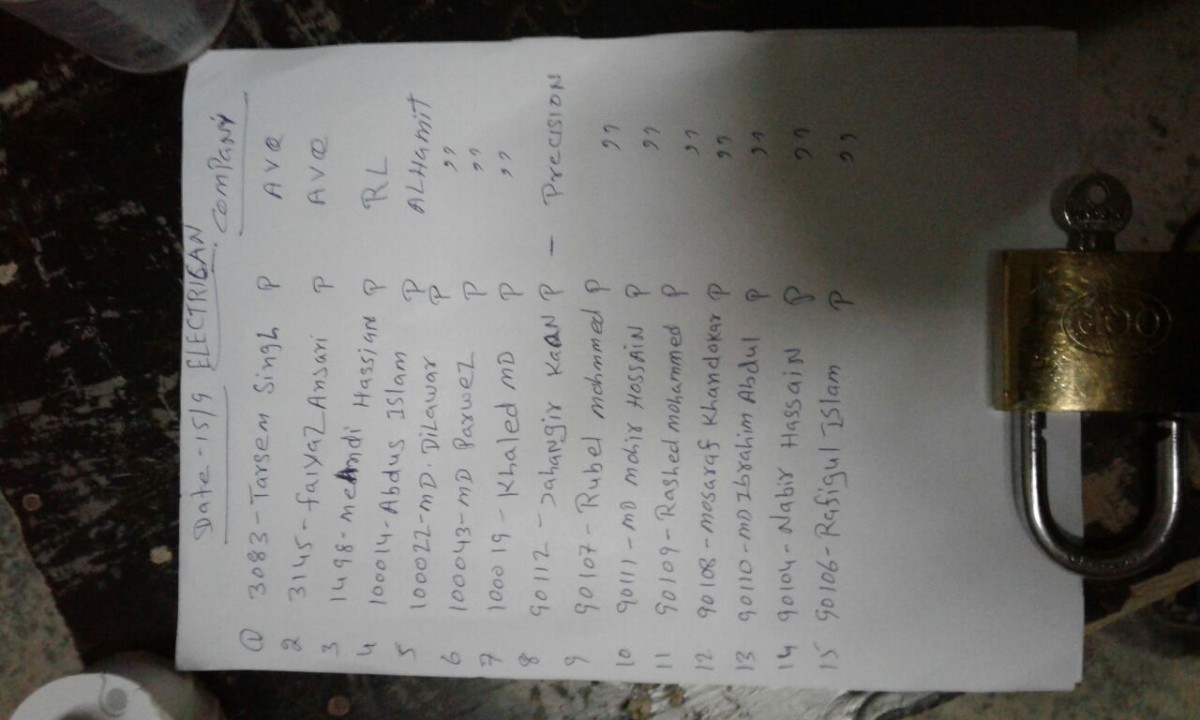 Date-15/9 ELECTRICAN. COMPANY
1 3083-Tarsem Singh P AVQ
2 3145-faiyaz Ansari P AVQ
3 1498-mehndi Hassian P RL
4 100014-Abdus Islam P ALHamit
5 100022-mD.Dilawar P ,,
6 100043-MD Parwez P ,,
7 100019-Khaled MD P ,,
8 90112-Jahangir Kaan P - Precision
9 90107-Rubel mohmmed P ,,
10 90111-MD mohir Hossain P ,,
11 90109-Rashed mohammed P ,,
12 90108-mosaraf Khandokar P ,,
13 90110-mD Ibrahim Abdul P ,,
14 90104-Nabir Hassain P ,,
15 90106-Rafiqul Islam P ,,